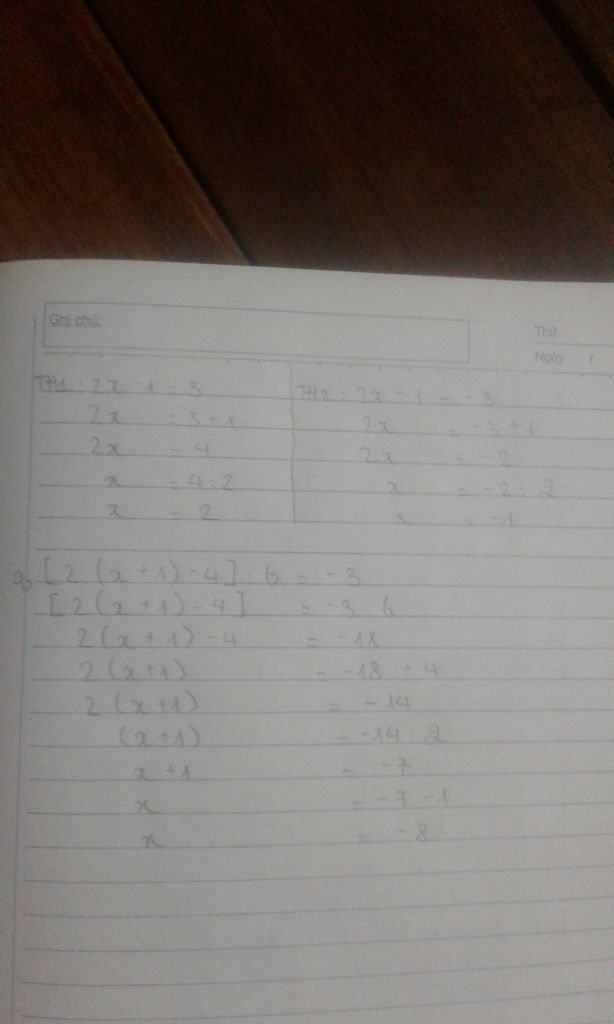 Ghi chú:
Thứ
Ngày /
TH1: 2x - 1 = 3
2x = 3 + 1
2x = 4
x = 4 : 2
x = 2
TH2: 2x - 1 = -3
2x = -3 + 1
2x = -2
x = -2 : 2
x = -1
[2 (x + 1) - 4] : 6 = -3
[2 (x + 1) - 4] = -3 . 6
2 (x + 1) - 4 = -18
2 (x + 1) = -18 + 4
2 (x + 1) = -14
(x + 1) = -14 : 2
x + 1 = -7
x = -7 - 1
x = -8